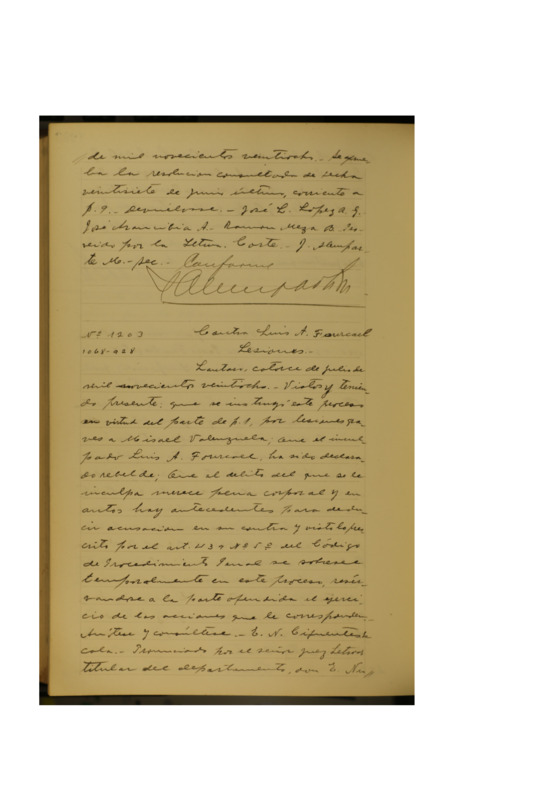 de mil novecientos veintiocho.- Se aprue
ba la resolucion consultada de fecha
veintisiete de junio último, corriente a
f. 9.- Devuélvase.- José L. López A. J.
José Arancibia A. Ramon Meza B. Pro
veido por la Iltma. Corte.- J.
te M.- sec.- Conforme
Nº 1203 Contra Luis A. Fourcael
1068-928 Lesiones.-
Lautaro, catorce de julio de
mil novecientos veintiocho.- Vistos y tenien
do presente: que se instruyó este proceso
en virtud del parte de f. 1, por lesiones gra
ves a Misael Valenzuela; que el incul
pado Luis A. Fourcael, ha sido declara
do rebelde; Que el delito del que se le
inculpa merece pena corporal y en
autos hay antecedentes para dedu
cir acusacion en su contra y visto lo pres
crito por el art. 439 Nº 5º del Código
de Procedimiento Penal se sobresee
temporalmente en este proceso, resér
vandose a la parte ofendida el ejerci
cio de las acciones que le correspondan.-
Anótese y consúltese.- E. N. Cifuentes
Pronunciado por el señor juez Letrado
titular del departamento, don E.